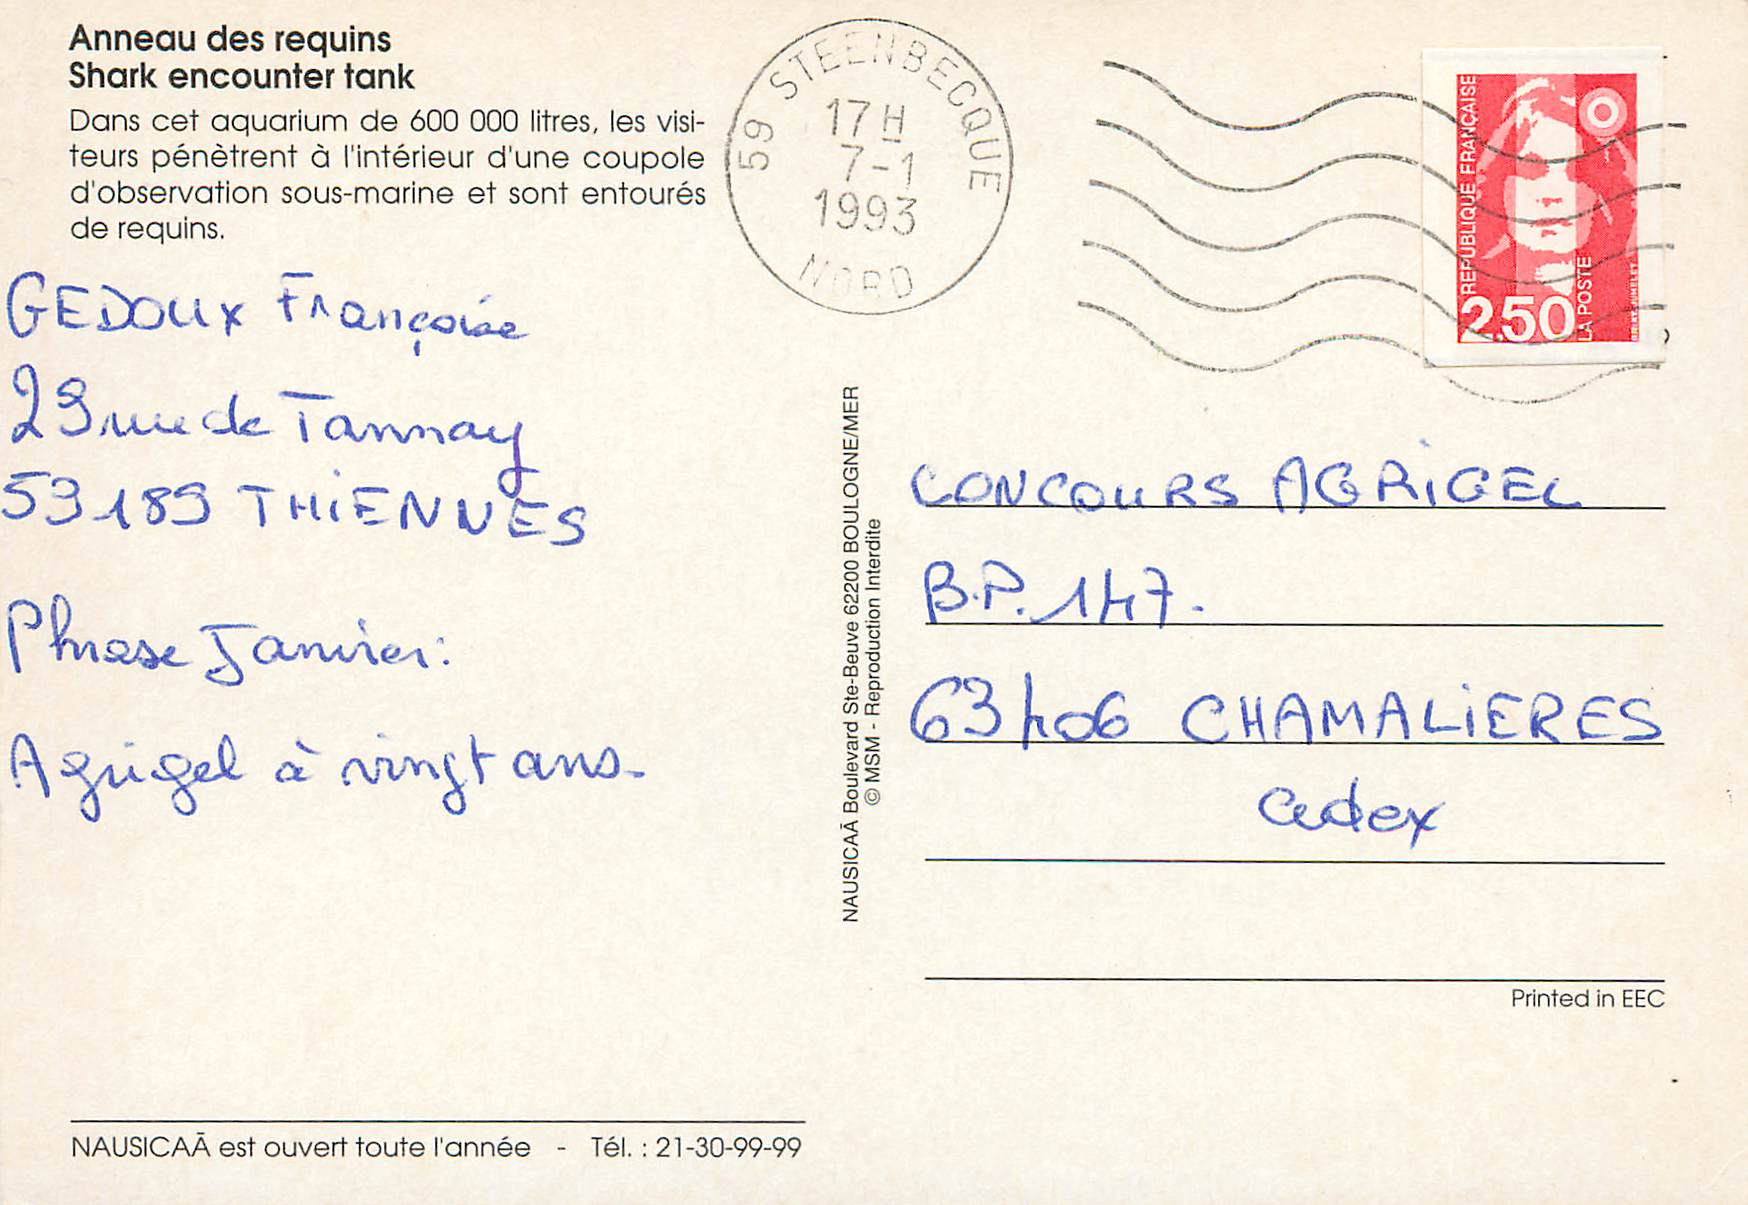 Anneau des requins
Shark encounter tank
Dans cet aquarium de 600 000 litres, les visi-
teurs pénètrent à l'intérieur d'une coupole
d'observation sous-marine et sont entourés
de requins.
GEDOUX Françoise
29 rue de Tannay
59189 THIENNES
Phrase Janvier:
Agrigel à vingt ans-
NAUSICAĀ est ouvert toute l'année - Tél. : 21-30-99-99
NAUSICAĀ Boulevard Ste-Beuve 62200 BOULOGNE/MER
© MSM - Reproduction Interdite
59 STEENBECQUE
17H
7-1
1993
NORD
REPUBLIQUE FRANÇAISE
2,50
LA POSTE
CONCOURS AGRIGEL
B.P. 147.
63406 CHAMALIERES
cedex
Printed in EEC